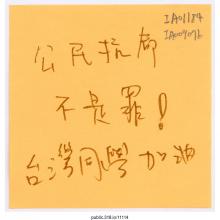 IA01184
公民抗命
不是罪！
台灣同學加油
public.318.io/11114